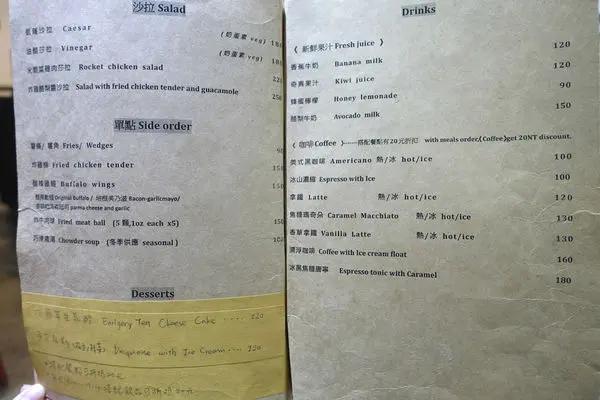 沙拉 Salad
凱薩沙拉 Caesar (奶蛋素 veg) 180
油醋沙拉 Vinegar (奶蛋素 veg) 180
Rocket chicken salad 220
Salad with fried chicken tender and guacamole 250
單點 Side order
Fries/ Wedges
Fried chicken tender 150
Buffalo wings 150
Original buffalo / Bacon-garlicmayo/
parma cheese and garlic
Fried meat ball (5 顆,1oz each x5) 150
巧達濃湯 Chowder soup (冬季供應 seasonal)
Desserts
Earlgery Tea Cheese Cake ···· 120
Dacquoise with Ice Cream ··· 150
Drinks
《 新鮮果汁 Fresh juice 》
香蕉牛奶 Banana milk 120
奇異果汁 Kiwi juice 120
蜂蜜檸檬 Honey lemonade 90
酪梨牛奶 Avocado milk 150
《 咖啡 Coffee 》-----搭配餐點有20元折扣 with meals order,(Coffee)get 20NT discount.
美式黑咖啡 Americano 熱/冰 hot/ice 100
冰山濃縮 Espresso with Ice 100
拿鐵 Latte 熱/冰 hot/ice 120
焦糖瑪奇朵 Caramel Macchiato 熱/冰 hot/ice 130
香草拿鐵 Vanilla Latte 熱/冰 hot/ice 130
漂浮咖啡 Coffee with Ice cream float 160
冰黑焦糖唐寧 Espresso tonic with Caramel 180